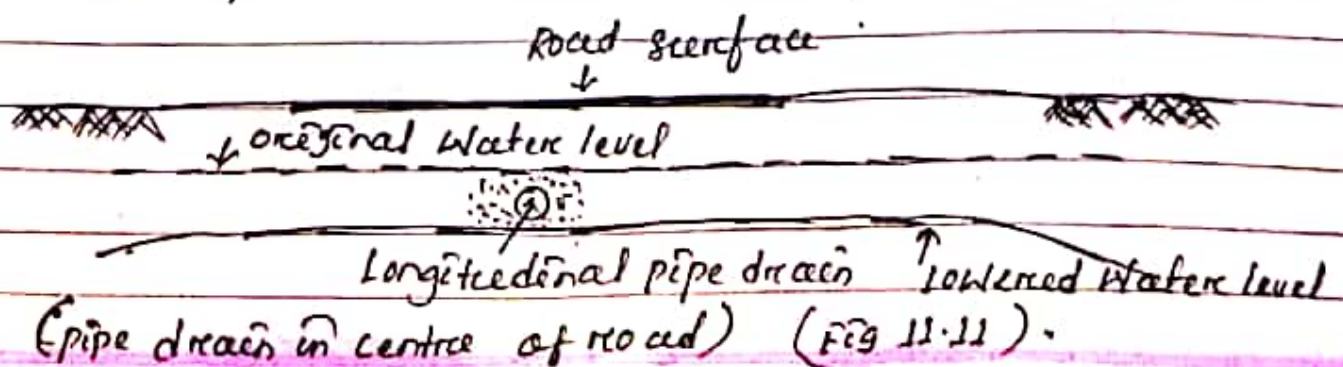 Road surface
original Water level
Longitudinal pipe drain lowered Water level
(pipe drain in centre of road) (Fig 11.11).